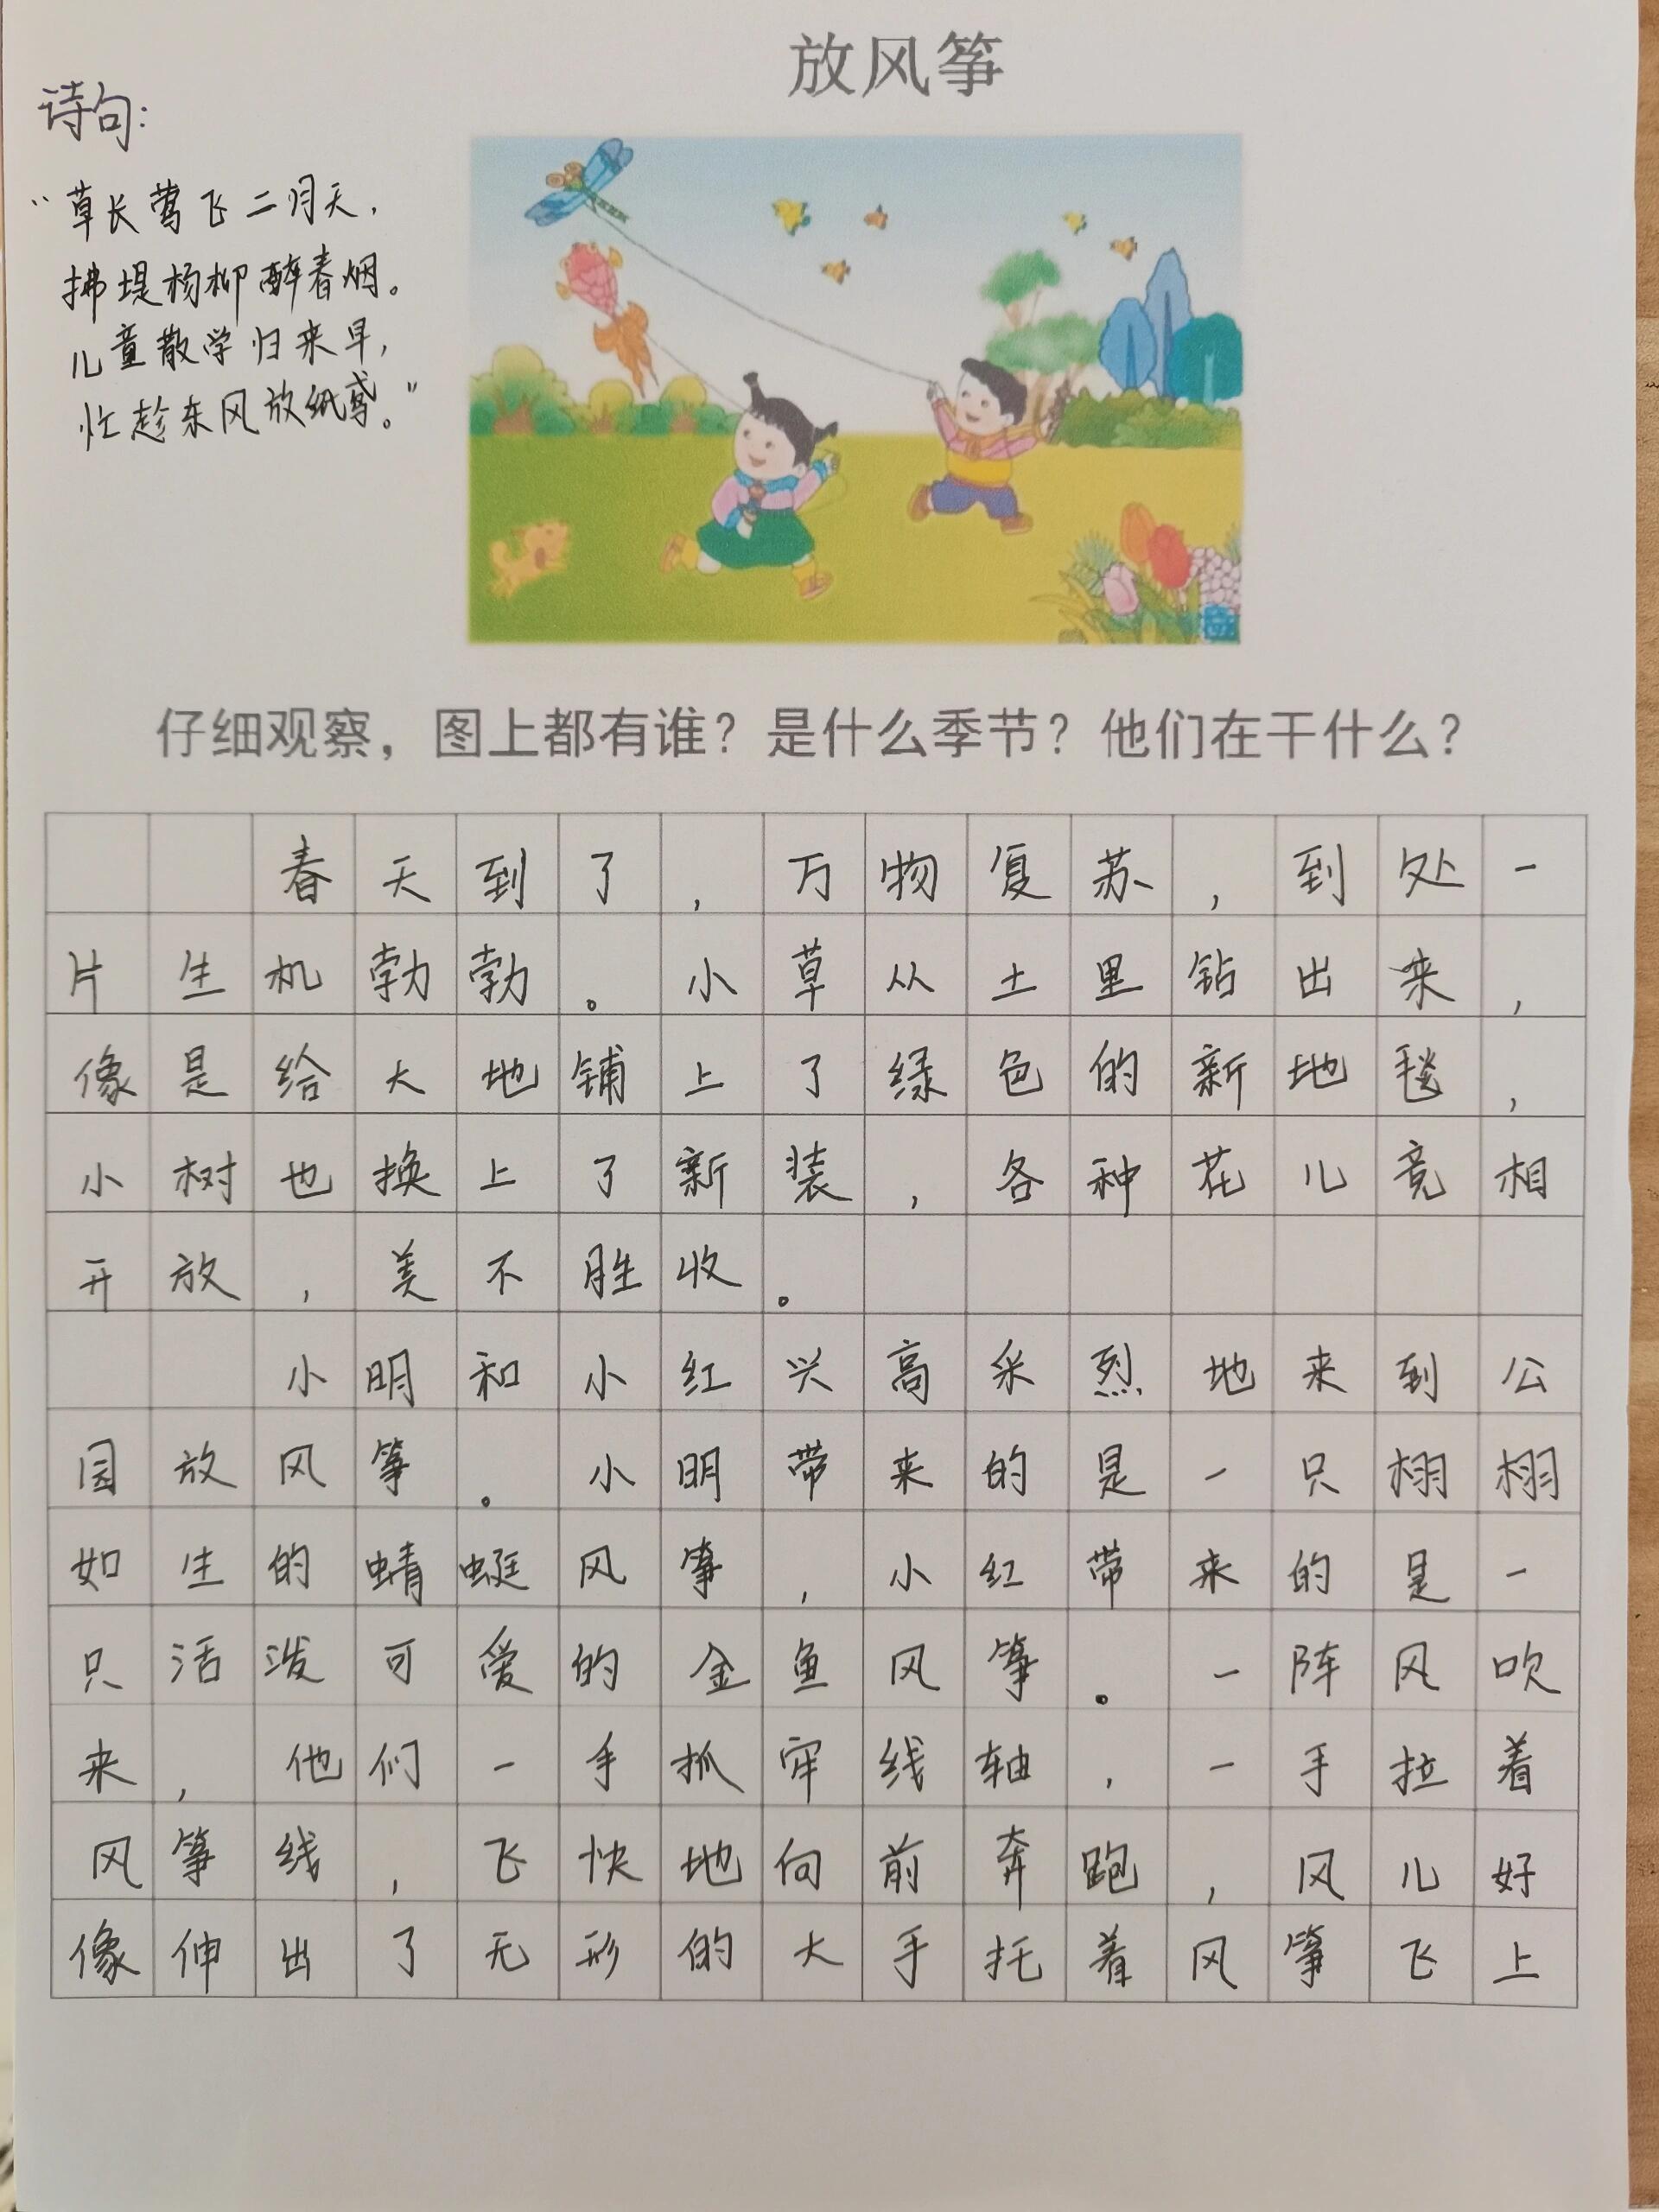 放风筝
诗句：
“草长莺飞二月天，
拂堤杨柳醉春烟。
儿童散学归来早，
忙趁东风放纸鸢。”
仔细观察，图上都有谁？是什么季节？他们在干什么？
春天到了，万物复苏，到处一
片生机勃勃。小草从土里钻出来，
像是给大地铺上了绿色的新地毯，
小树也换上了新装，各种花儿竞相
开放，美不胜收。
小明和小红兴高采烈地来到公
园放风筝。小明带来的是一只栩栩
如生的蜻蜓风筝，小红带来的是一
只活泼可爱的金鱼风筝。一阵风吹
来，他们一手抓牢线轴，一手拉着
风筝线，飞快地向前奔跑，风儿好
像伸出了无形的大手托着风筝飞上